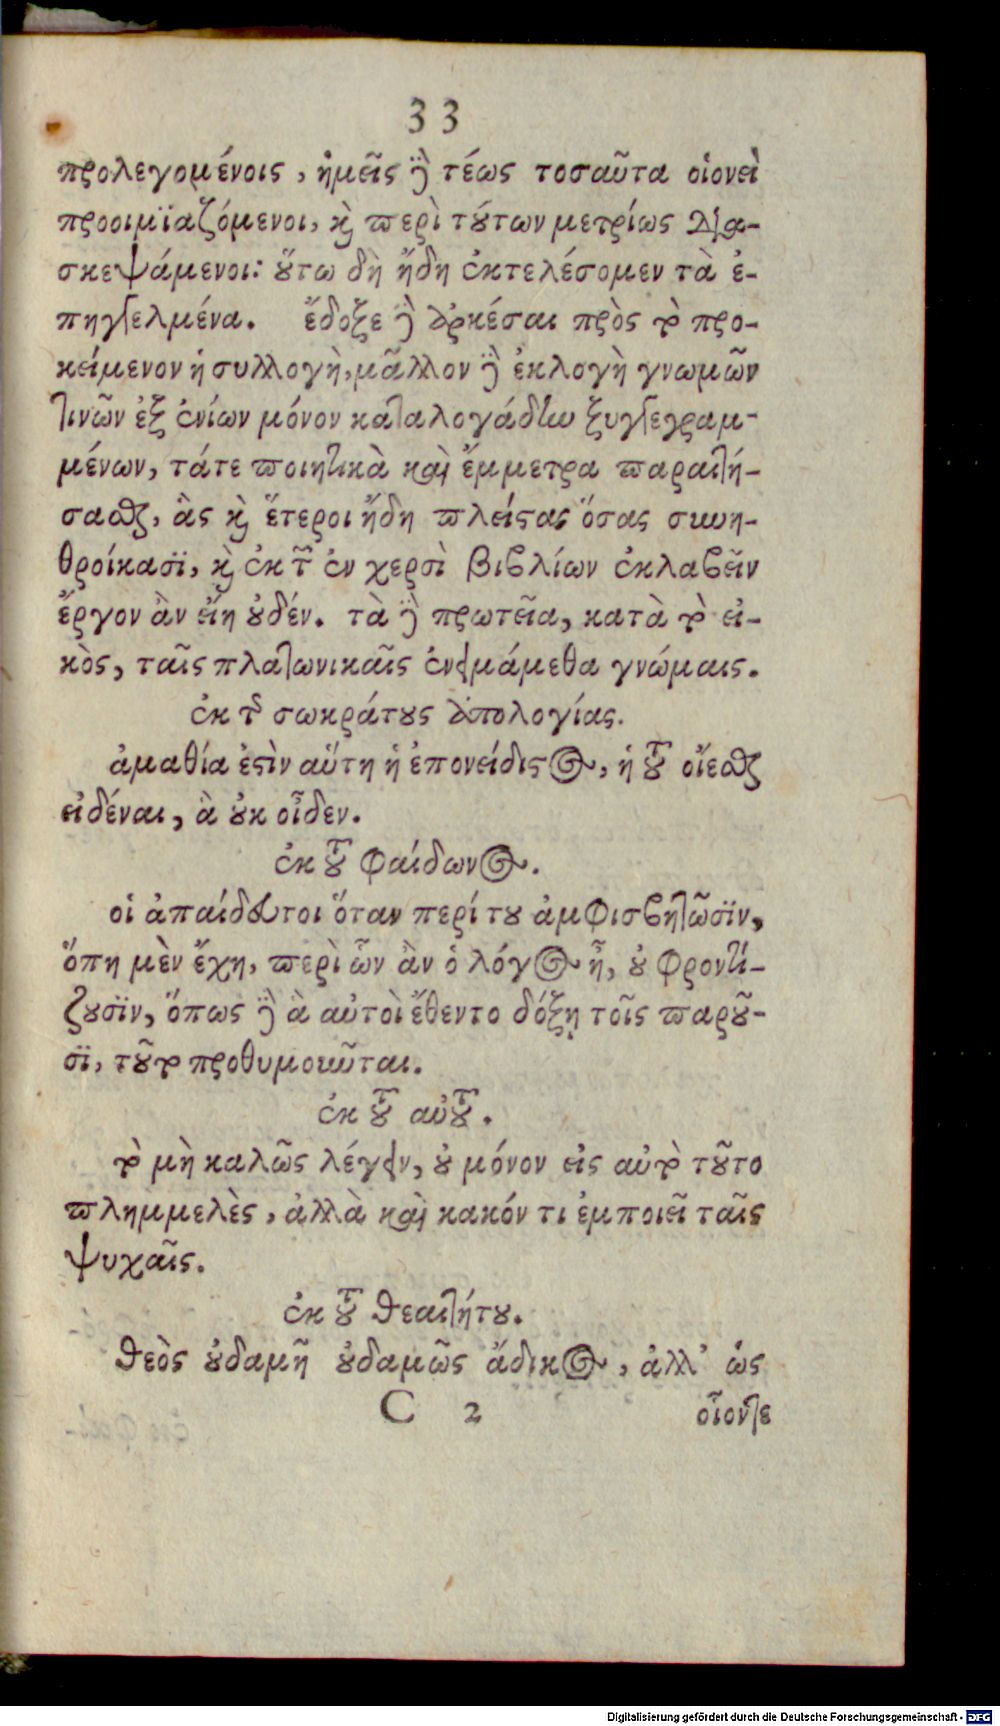 33
προλεγομένοις, ἡμεῖς δὲ τέως τοσαῦτα οἱονεὶ
προοιμϊαζόμενοι, καὶ περὶ τούτων μετρίως δια-
σκεψάμενοι: οὕτω δὴ ἤδη ἐκτελέσομεν τὰ ἐ-
πηγγελμένα. ἔδοξε δὲ ἀρκέσαι πρὸς τὸ προ-
κείμενον ἡ συλλογὴ, μᾶλλον δὲ ἐκλογὴ γνωμῶν
τινῶν ἐξ ἐνίων μόνον καταλογάδην ξυγγεγραμ-
μένων, τάτε ποιητικὰ καὶ ἔμμετρα παραιτή-
σασθαι, ἃς καὶ ἕτεροι ἤδη πλείστας ὅσας συνη-
θροίκασϊ, καὶ ἐκ τῶν ἐν χερσὶ βιβλίων ἐκλαβεῖν
ἔργον ἂν εἴη οὐδέν. τὰ δὲ πρωτεῖα, κατὰ τὸ εἰ-
κὸς, ταῖς πλατωνικαῖς ἐνειμάμεθα γνώμαις.
ἐκ τῆς σωκράτους ἀπολογίας.
ἀμαθία ἐστὶν αὕτη ἡ ἐπονείδιστος, ἡ τοῦ οἴεσθαι
εἰδέναι, ἃ οὐκ οἶδεν.
ἐκ τοῦ φαίδωνος.
οἱ ἀπαίδευτοι ὅταν περί του ἀμφισβητῶσϊν,
ὅπη μὲν ἔχη, περὶ ὧν ἂν ὁ λόγος ἦ, οὐ φροντί-
ζουσϊν, ὅπως δὲ ἃ αὐτοὶ ἔθεντο δόξῃ τοῖς παροῦ-
σϊ, τοῦτο προθυμοιῦται.
ἐκ τοῦ αὐτοῦ.
τὸ μὴ καλῶς λέγειν, οὐ μόνον εἰς αὐτὸ τοῦτο
πλημμελὲς, ἀλλὰ καὶ κακόν τι ἐμποιεῖ ταῖς
ψυχαῖς.
ἐκ τοῦ θεαιτήτου.
θεὸς οὐδαμῆ οὐδαμῶς ἄδικος, ἀλλ' ὡς
C 2 οἷοντε
Digitalisierung gefördert durch die Deutsche Forschungsgemeinschaft - DFG